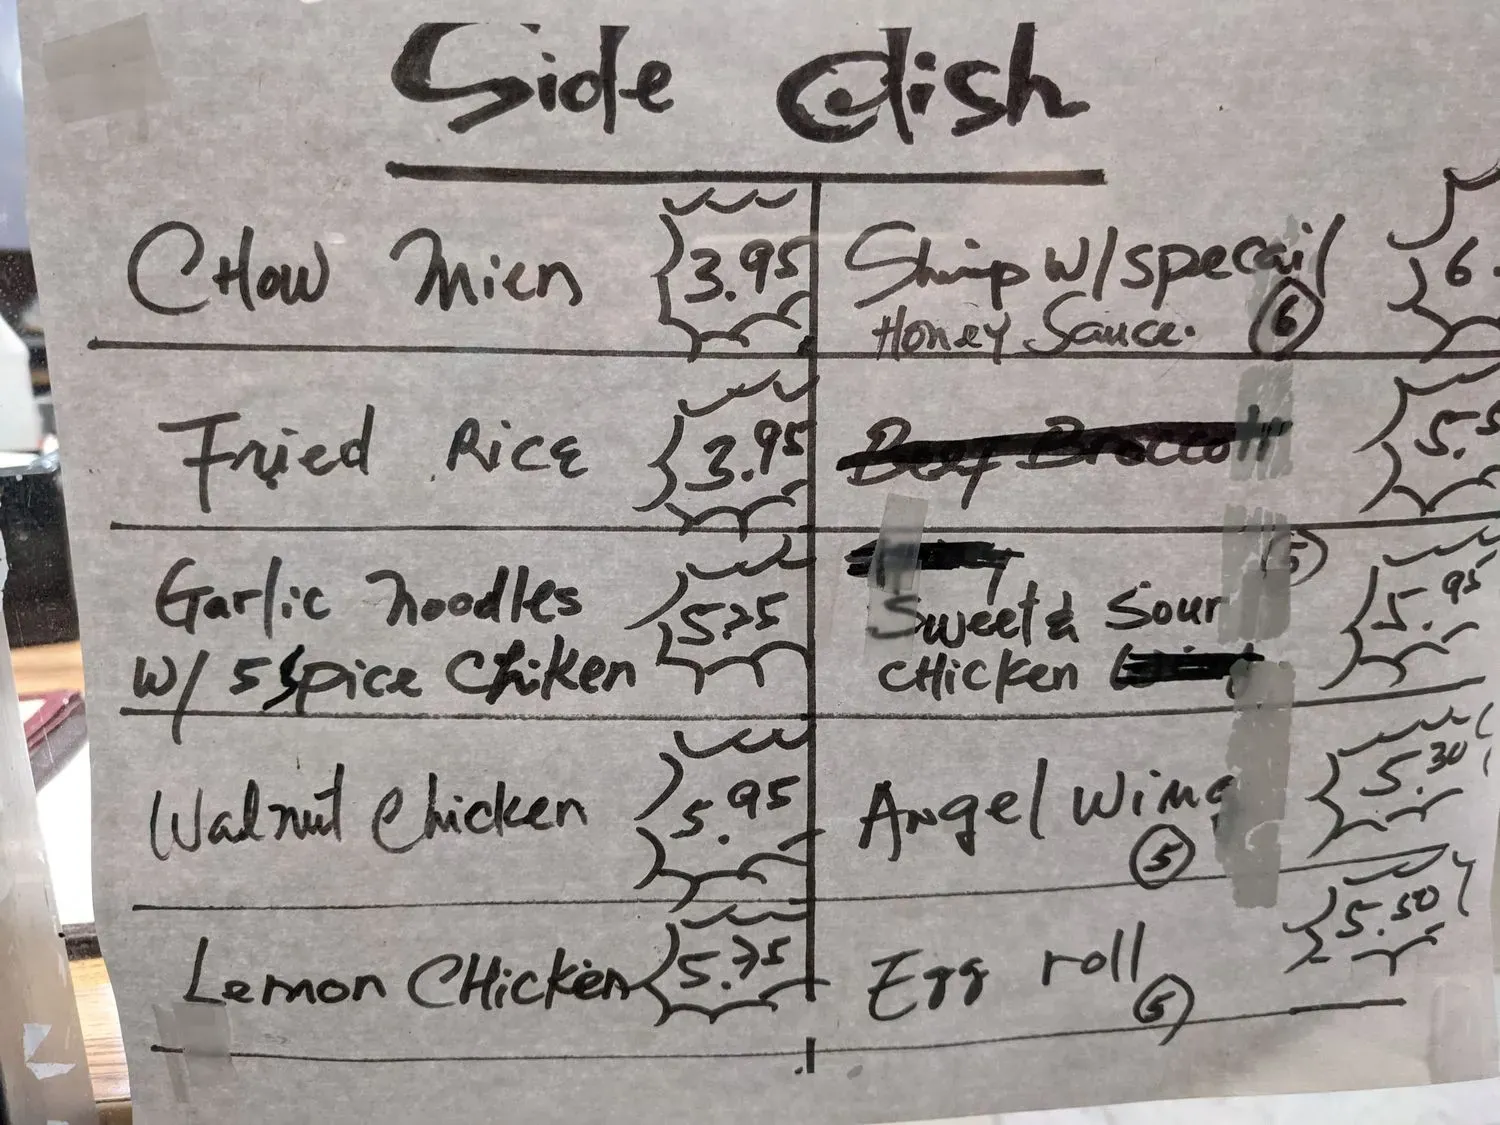 Side dish
CHow Mien 3.95
Fried RicE 3.95
Garlic Noodles
W/ 5 Spice Chiken 5.75
Walnut Chicken 5.95
Lemon CHicken 5.75
Shimp W/ specail 6.
Honey Sauce. 6
Beef Broccoli 5.5
5
Sweet & Sour 5.95
CHicken
Angel Wing 5.30
5
Egg roll 5.50
5